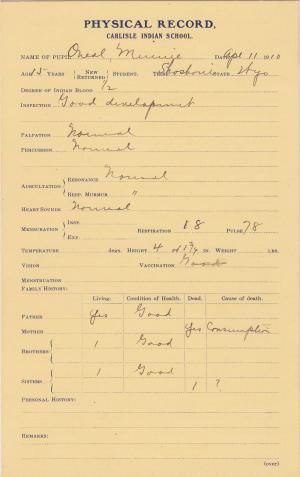 PHYSICAL RECORD,
CARLISLE INDIAN SCHOOL.
NAME OF PUPIL Oneal, Minnie DATE Apr 11 1910
AGE 15 YEARS { NEW RETURNED } STUDENT. TRIBE Shoshoni STATE Wyo
DEGREE OF INDIAN BLOOD 1/2
INSPECTION Good development
PALPATION Normal
PERCUSSION Normal
AUSCULTATION { RESONANCE Normal
RESP. MURMUR "
HEART SOUNDS Normal
MENSURATION { INSP.
EXP. RESPIRATION 18 PULSE 78
TEMPERATURE DEGS. HEIGHT 4 FT. IN. WEIGHT LBS.
VISION VACCINATION Good
MENSTRUATION
FAMILY HISTORY:
Living. Condition of Health. Dead. Cause of death.
FATHER Yes Good
MOTHER Yes Consumption
BROTHERS { 1 Good
SISTERS { 1 Good
1 ?
PERSONAL HISTORY:
REMARKS:
(over)